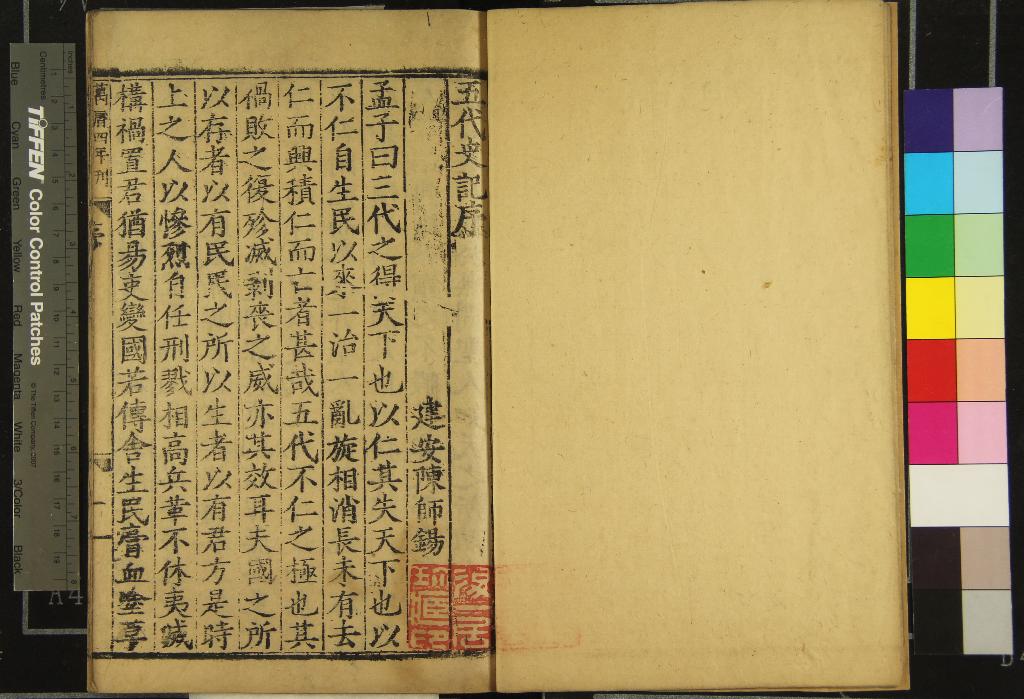 五代史記序
建安陳師錫
孟子曰三代之得天下也以仁其失天下也以
不仁自生民以來一治一亂旋相消長未有去
仁而興積仁而亡者甚哉五代不仁之極也其
禍敗之復殄滅剥喪之威亦其效耳夫國之所
以存者以有民民之所以生者以有君方是時
上之人以慘烈自任刑戮相高兵革不休夷滅
構禍置君猶易吏變國若傳舍生民膏血塗草
萬曆四年刊
序
一
inches
Centimetres
TIFFEN Color Control Patches
© The Tiffen Company, 2007
Blue Cyan Green Yellow Red Magenta White 3/Color Black
A4